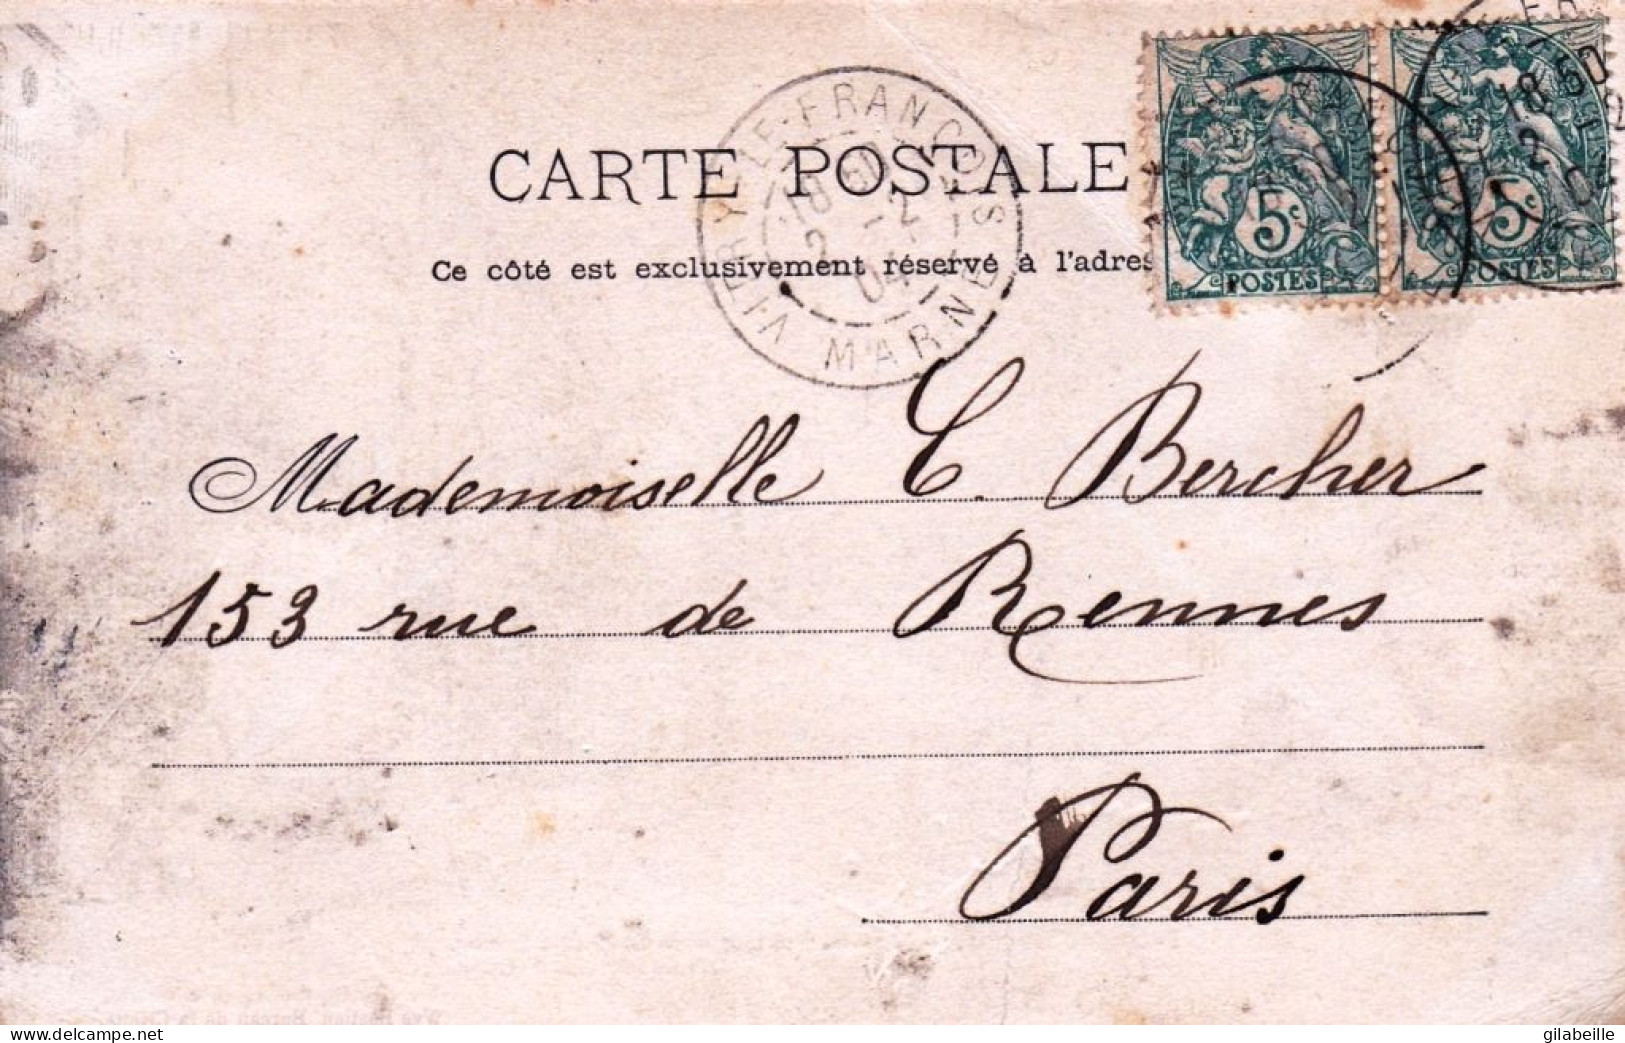 CARTE POSTALE
Ce côté est exclusivement réservé à l'adres
VITRY-LE-FRANÇOIS
18 50
2 -2
04
MARNE
5c
POSTES
5c
POSTES
18 50
2
Mademoiselle C. Bercher
153 rue de Rennes
Paris
gilabeille